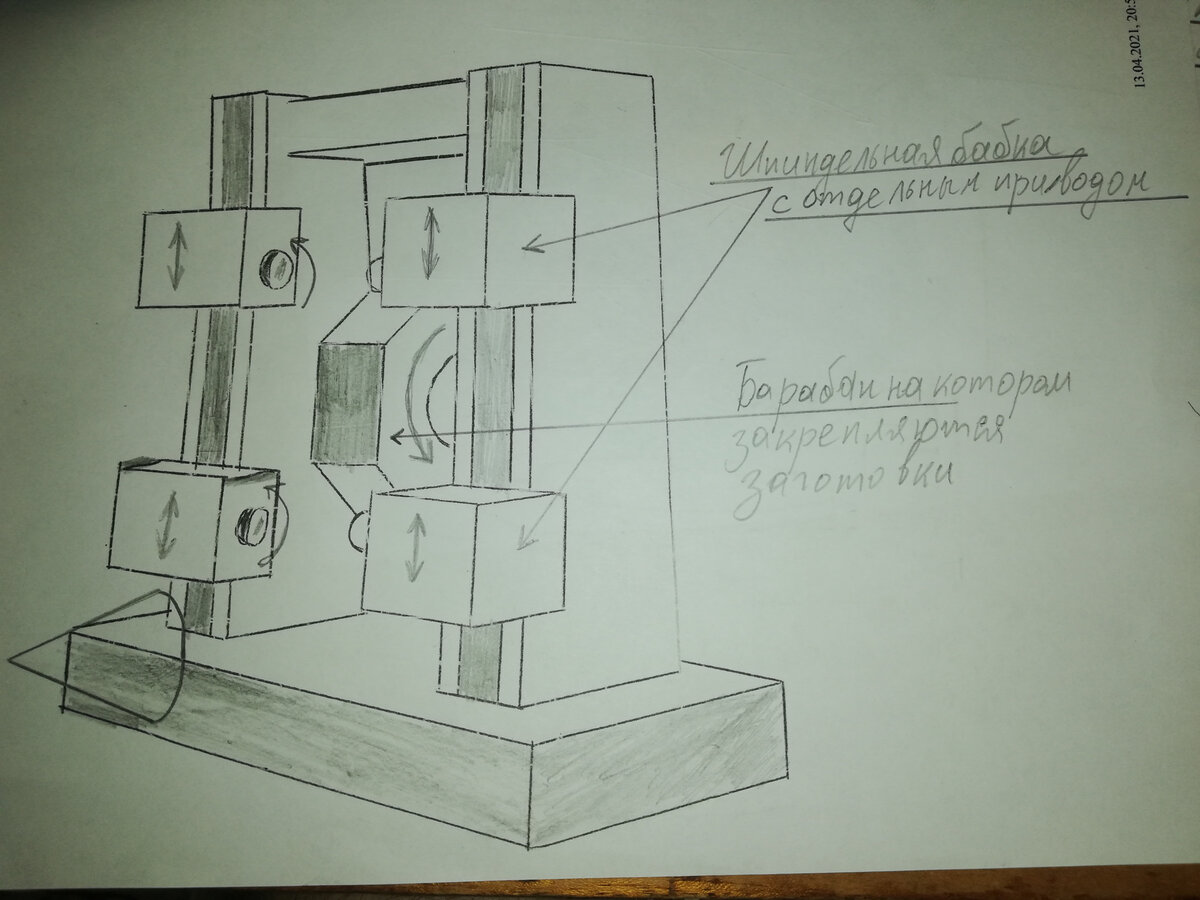 13.04.2021, 20:5
Шпиндельная бабка
с отдельным приводом
Барабан на котором
закрепляются
заготовки